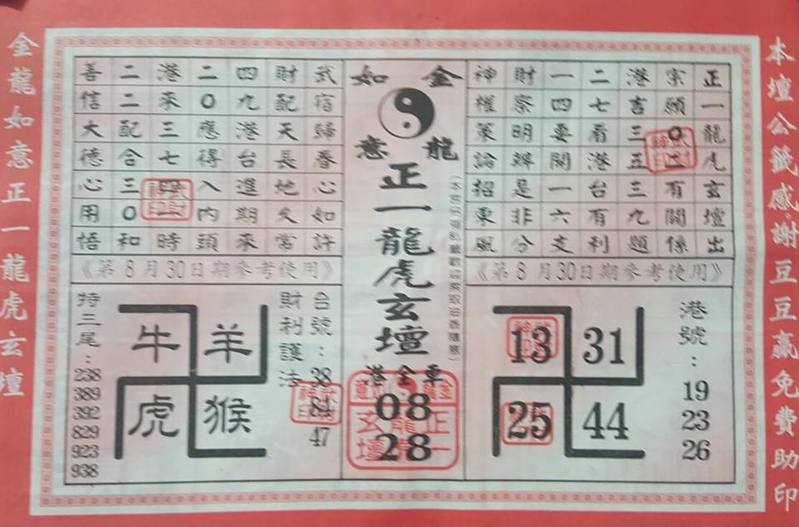 本壇公籤感謝豆豆贏免費助印
正一龍虎玄壇出
宗願○有關係
港吉三五三九題
二七看港台有利
一四要開一六支
財察明辨是非分
神權策論招東風
《第8月30日期參考使用》
港號：
19
23
26
13 31
25 44
金龍
如意
正一龍虎玄壇
港全車
08
28
武宿歸番心如許
財配天長地久常
四九港台進期來
二○應得入內頭
港來三七時
二二配合三○和
善信大德心用悟
《第8月30日期參考使用》
台號：
38
84
47
財利護法
牛 羊
虎 猴
特三尾：
238
389
392
829
923
938
金龍如意正一龍虎玄壇